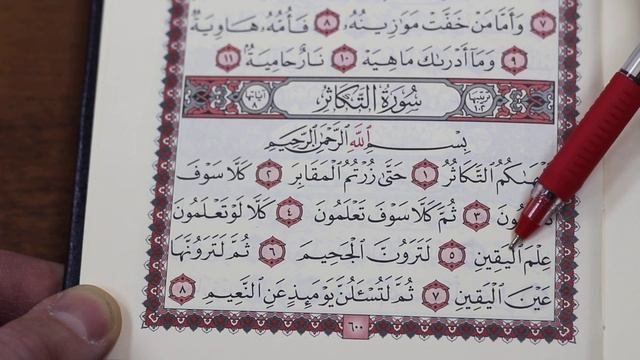 ٧ وَأَمَّا مَنْ خَفَّتْ مَوَٰزِينُهُۥ ٨ فَأُمُّهُۥ هَاوِيَةٌ
٩ وَمَآ أَدْرَىٰكَ مَا هِيَهْ ١٠ نَارٌ حَامِيَةٌۢ ١١
ترتيبها ١٠٢ سُورَةُ التَّكَاثُرِ آياتها ٨
بِسْمِ ٱللَّهِ ٱلرَّحْمَٰنِ ٱلرَّحِيمِ
ٱلتَّكَاثُرُ ١ حَتَّىٰ زُرْتُمُ ٱلْمَقَابِرَ ٢ كَلَّا سَوْفَ
٣ ثُمَّ كَلَّا سَوْفَ تَعْلَمُونَ ٤ كَلَّا لَوْ تَعْلَمُونَ
عِلْمَ ٱلْيَقِينِ ٥ لَتَرَوُنَّ ٱلْجَحِيمَ ٦ ثُمَّ لَتَرَوُنَّهَا
عَيْنَ ٱلْيَقِينِ ٧ ثُمَّ لَتُسْـَٔلُنَّ يَوْمَئِذٍ عَنِ ٱلنَّعِيمِ ٨
٦٠٠